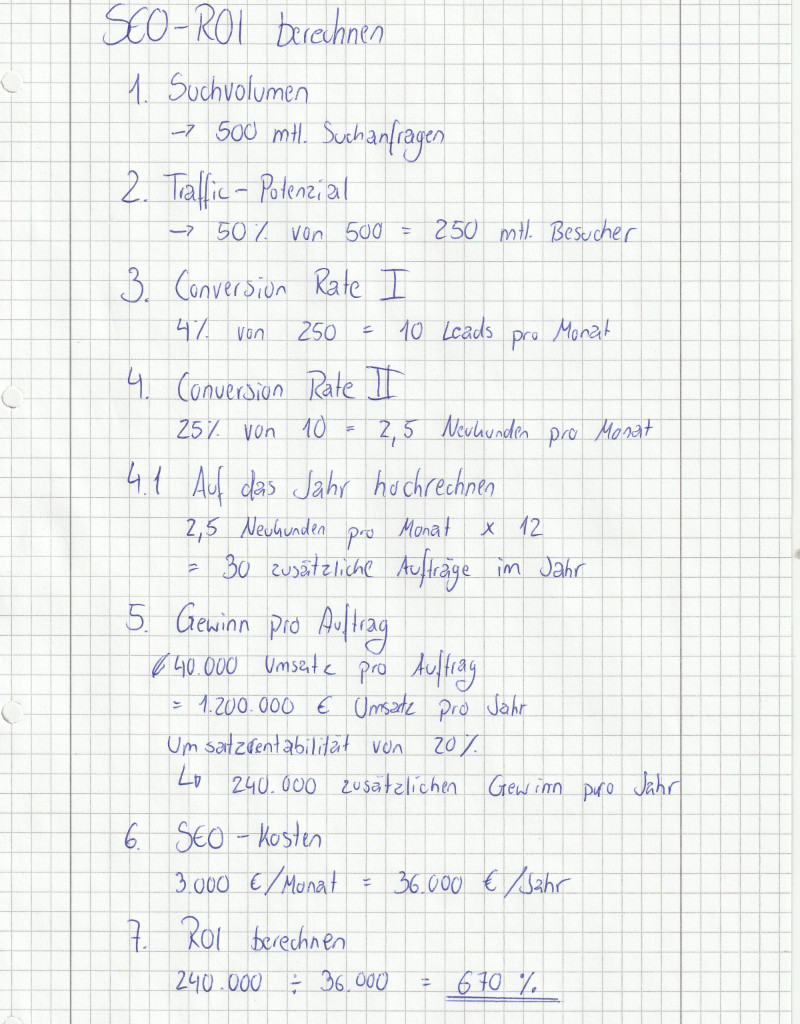 SEO-ROI berechnen
1. Suchvolumen
→ 500 mtl. Suchanfragen
2. Traffic-Potenzial
→ 50% von 500 = 250 mtl. Besucher
3. Conversion Rate I
4% von 250 = 10 Leads pro Monat
4. Conversion Rate II
25% von 10 = 2,5 Neukunden pro Monat
4.1 Auf das Jahr hochrechnen
2,5 Neukunden pro Monat x 12
= 30 zusätzliche Aufträge im Jahr
5. Gewinn pro Auftrag
40.000 Umsatz pro Auftrag
= 1.200.000 € Umsatz pro Jahr
Umsatzrentabilität von 20%
↳ 240.000 zusätzlichen Gewinn pro Jahr
6. SEO-Kosten
3.000 €/Monat = 36.000 €/Jahr
7. ROI berechnen
240.000 ÷ 36.000 = 670 %